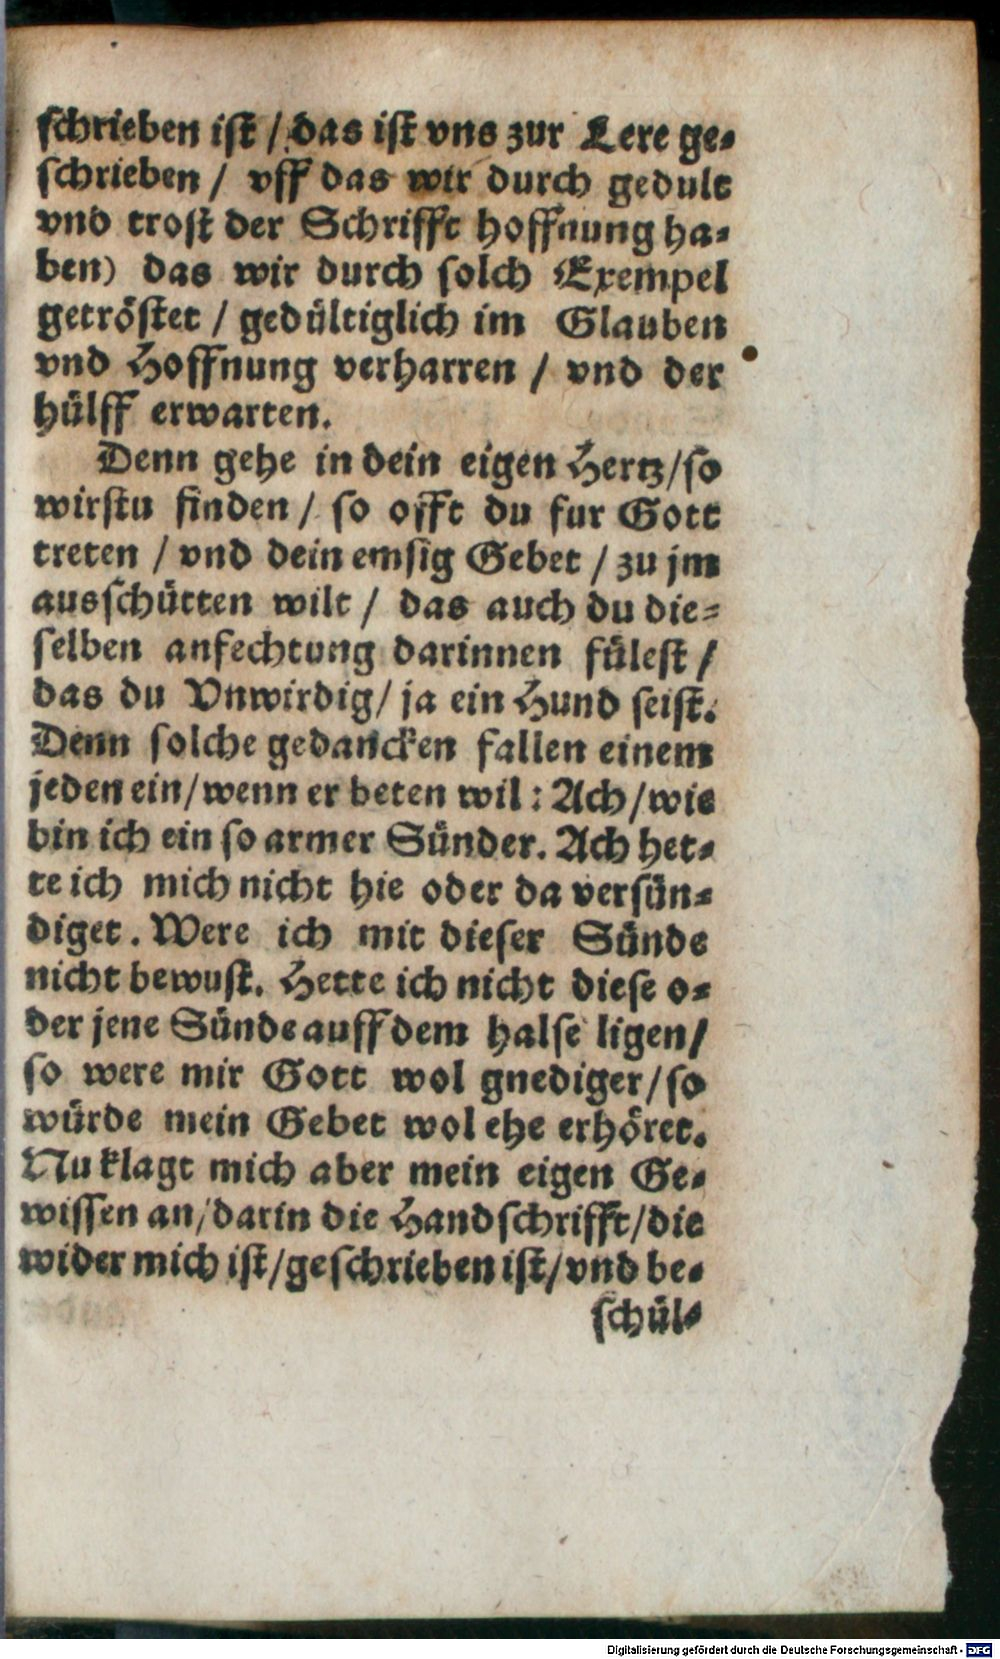 schrieben ist / das ist vns zur Lere ge-
schrieben / vff das wir durch gedult
vnd trost der Schrifft hoffnung ha-
ben) das wir durch solch Exempel
getröstet / gedültiglich im Glauben
vnd Hoffnung verharren / vnd der
hülff erwarten.
Denn gehe in dein eigen Hertz/so
wirstu finden / so offt du fur Gott
treten / vnd dein emsig Gebet / zu jm
ausschütten wilt / das auch du die-
selben anfechtung darinnen fülest /
das du Vnwirdig/ ja ein Hund seist.
Denn solche gedancken fallen einem
jeden ein/wenn er beten wil: Ach/wie
bin ich ein so armer Sünder. Ach het-
te ich mich nicht hie oder da versün-
diget. Were ich mit dieser Sünde
nicht bewust. Hette ich nicht diese o-
der jene Sünde auff dem halse ligen/
so were mir Gott wol gnediger/so
würde mein Gebet wol ehe erhöret.
Nu klagt mich aber mein eigen Ge-
wissen an/darin die Handschrifft/die
wider mich ist/geschrieben ist/vnd be-
schül-
Digitalisierung gefördert durch die Deutsche Forschungsgemeinschaft - DFG